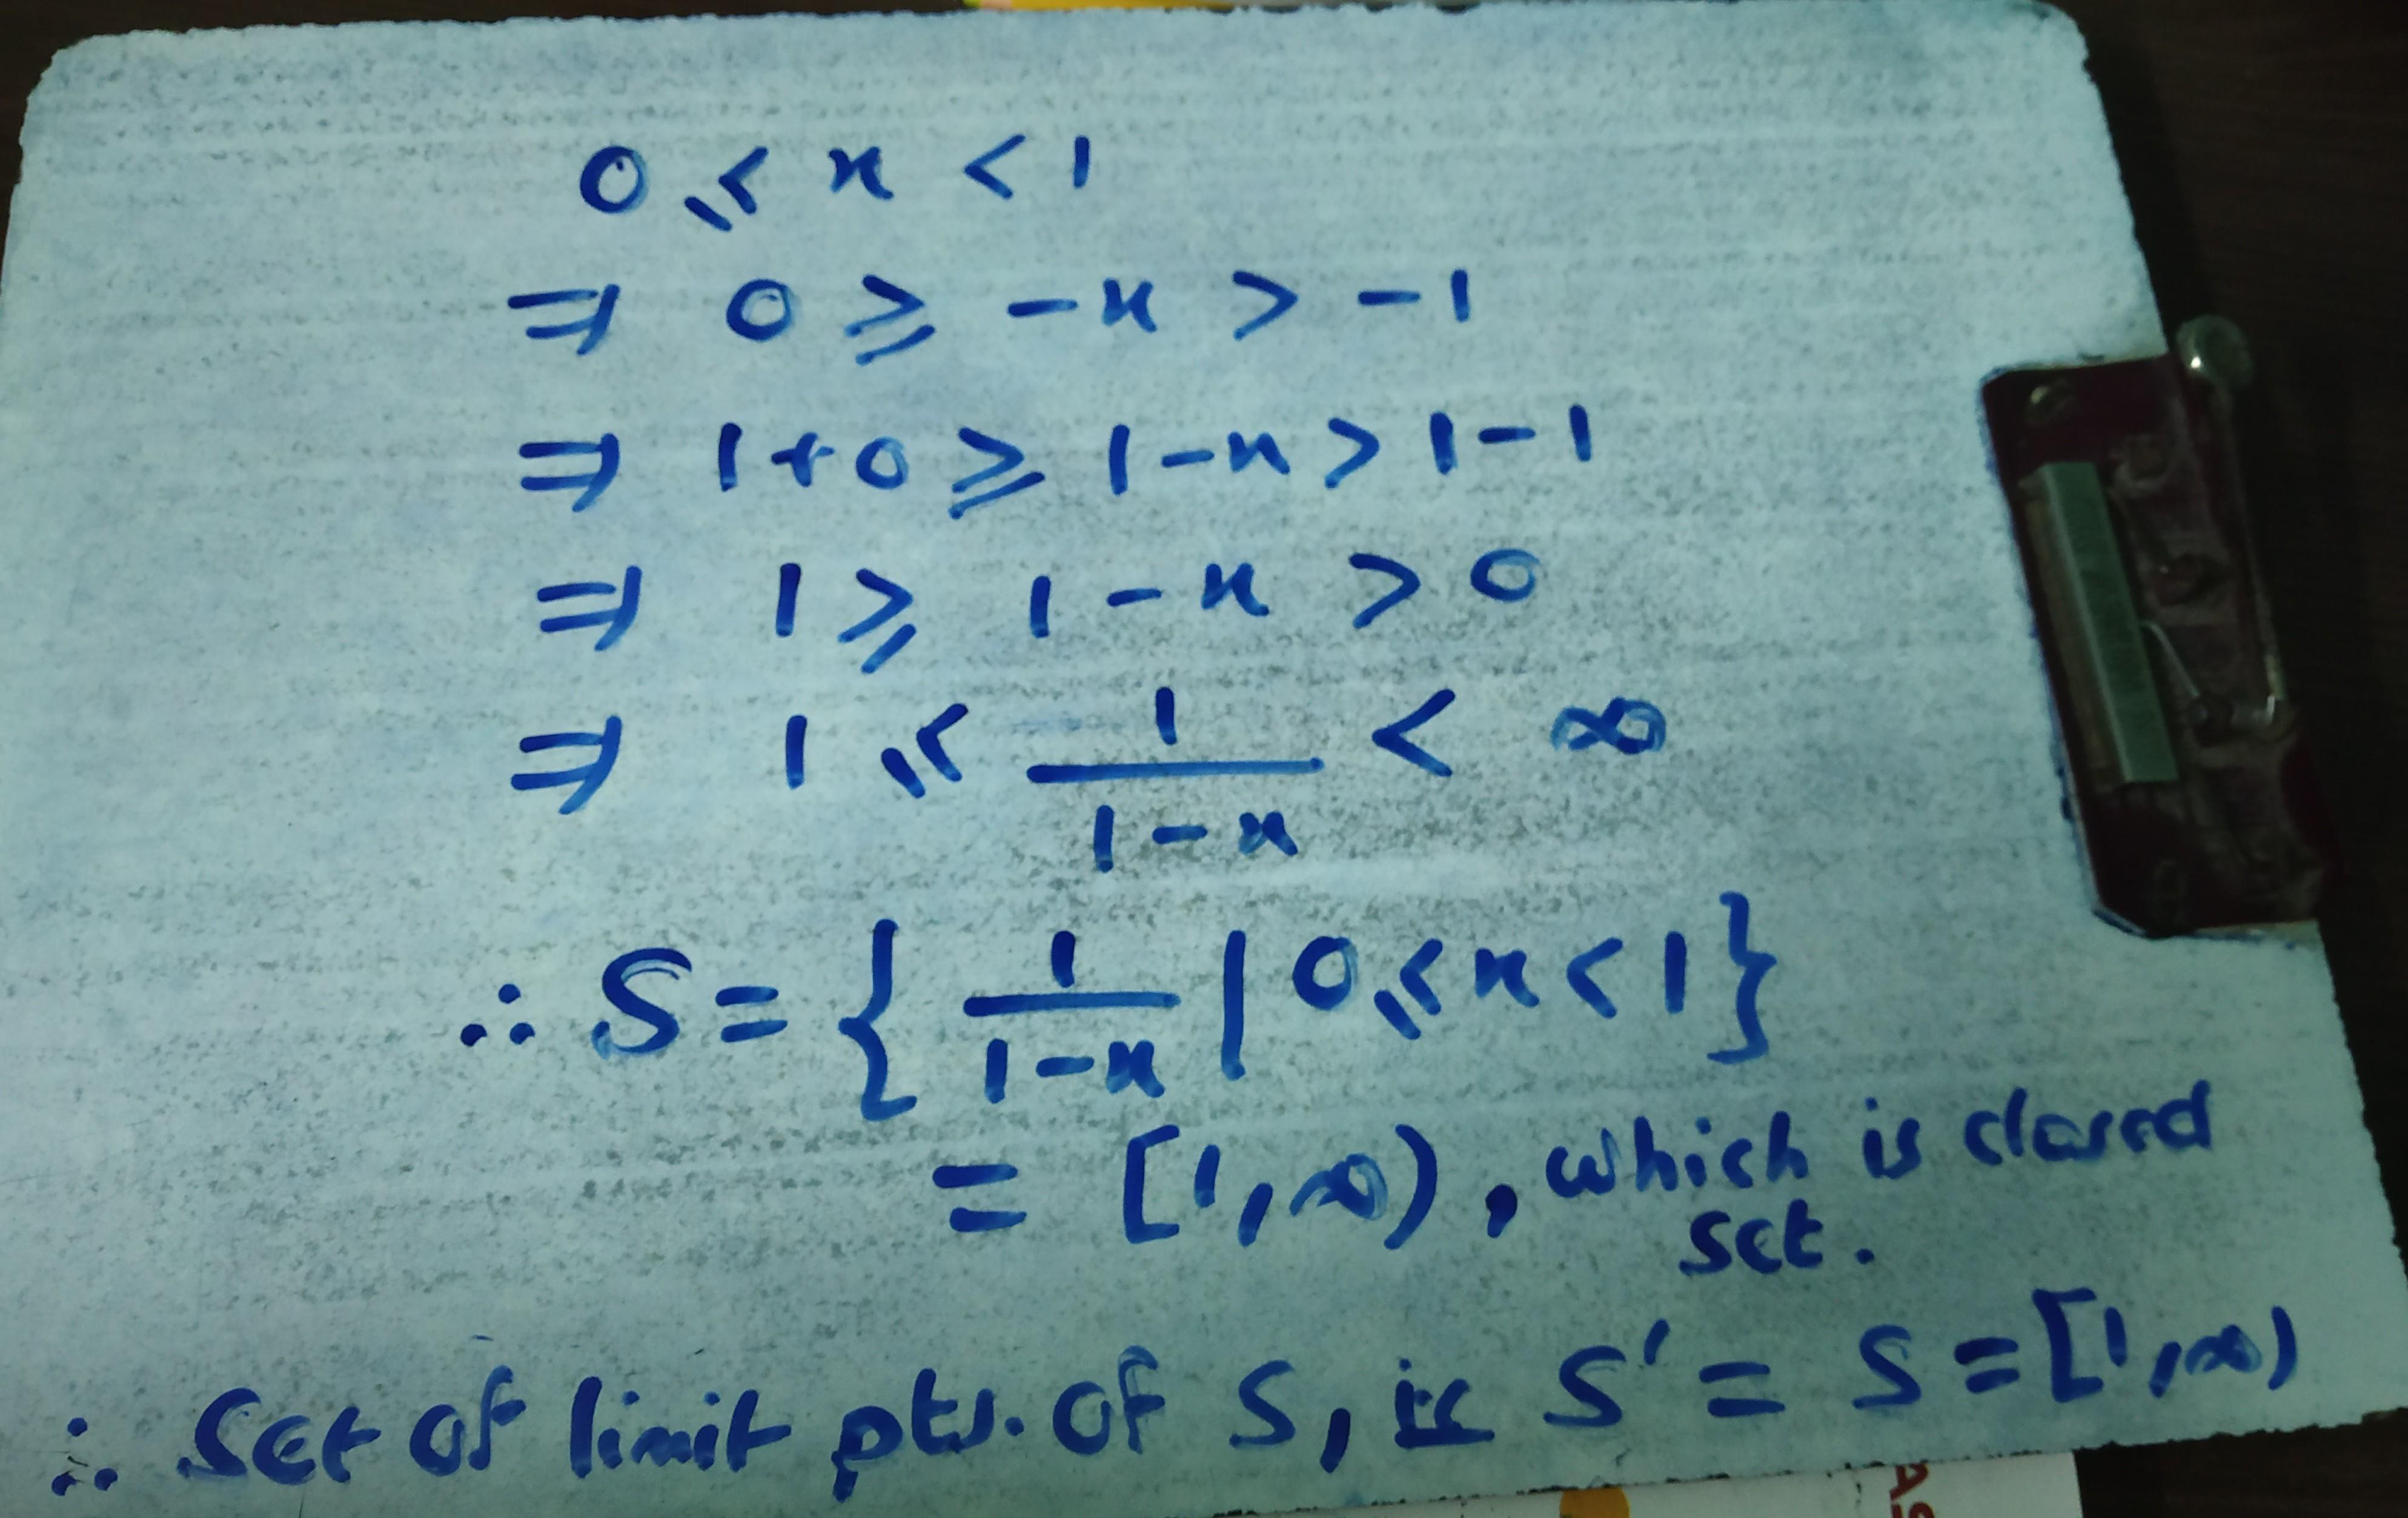 0 ⩽ x < 1
⇒ 0 ⩾ -x > -1
⇒ 1+0 ⩾ 1-x > 1-1
⇒ 1 ⩾ 1-x > 0
⇒ 1 ⩽ 1/(1-x) < ∞
∴ S = { 1/(1-x) | 0 ⩽ x < 1 }
= [1,∞), which is closed
set.
∴ Set of limit pts. of S, ie S' = S = [1,∞)
AS